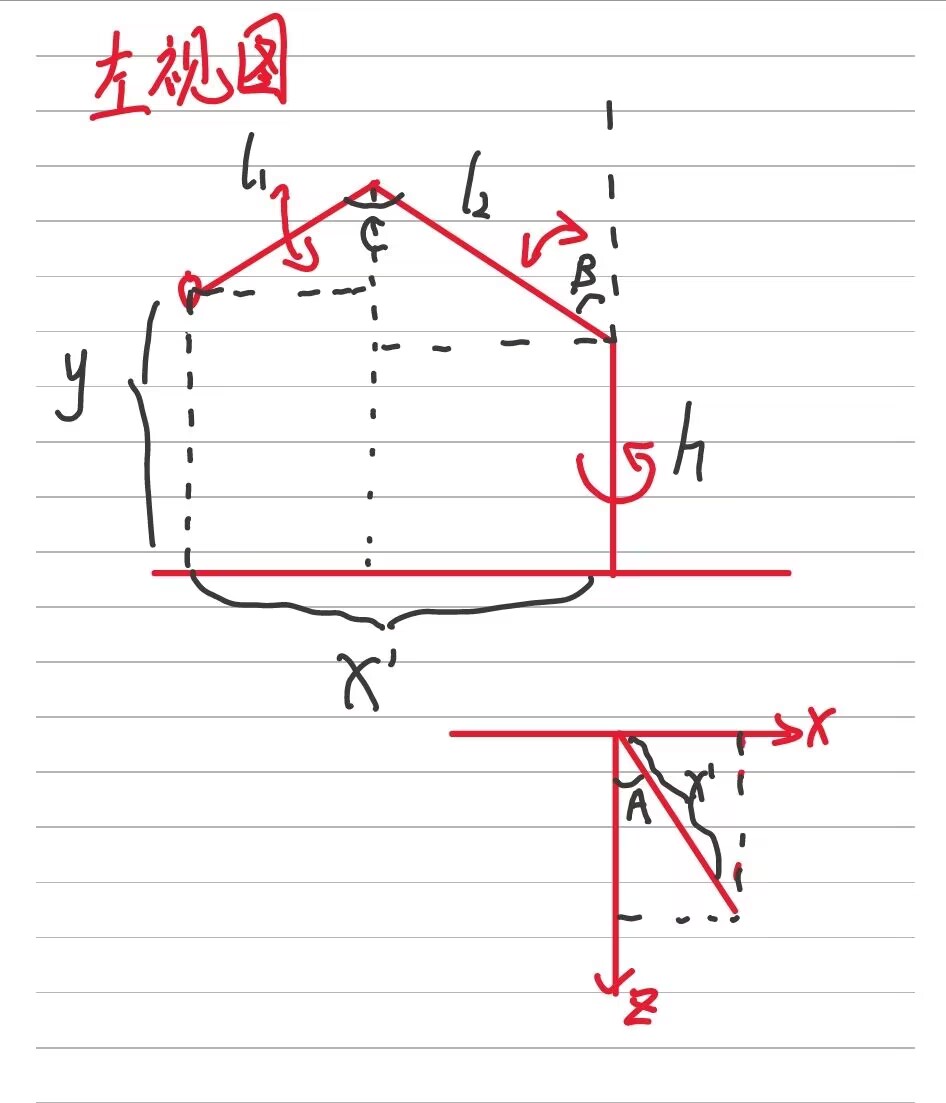 左视图
l₁
l₂
C
B
y
h
x'
X
x'
A
Z